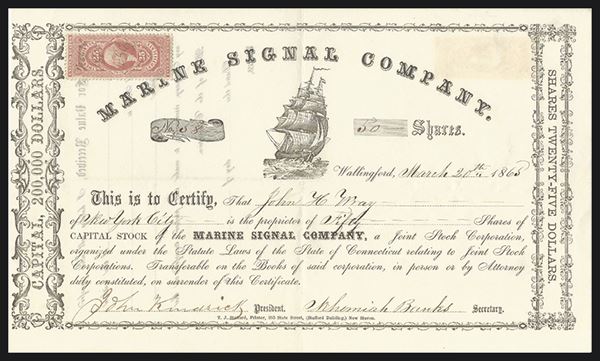 CAPITAL, 200,000 DOLLARS.
MARINE SIGNAL COMPANY.
No. 58
50 Shares.
Wallingford, March 20th 1865
This is to Certify, That John H Wray
of New York City is the proprietor of Fifty Shares of
CAPITAL STOCK of the MARINE SIGNAL COMPANY, a Joint Stock Corporation,
organized under the Statute Laws of the State of Connecticut relating to Joint Stock
Corporations. Transferable on the Books of said corporation, in person or by Attorney
duly constituted, on surrender of this Certificate.
John Kendrick President. Nehemiah Banks Secretary.
Printer, State Street, Building,) New Haven.
SHARES TWENTY-FIVE DOLLARS.